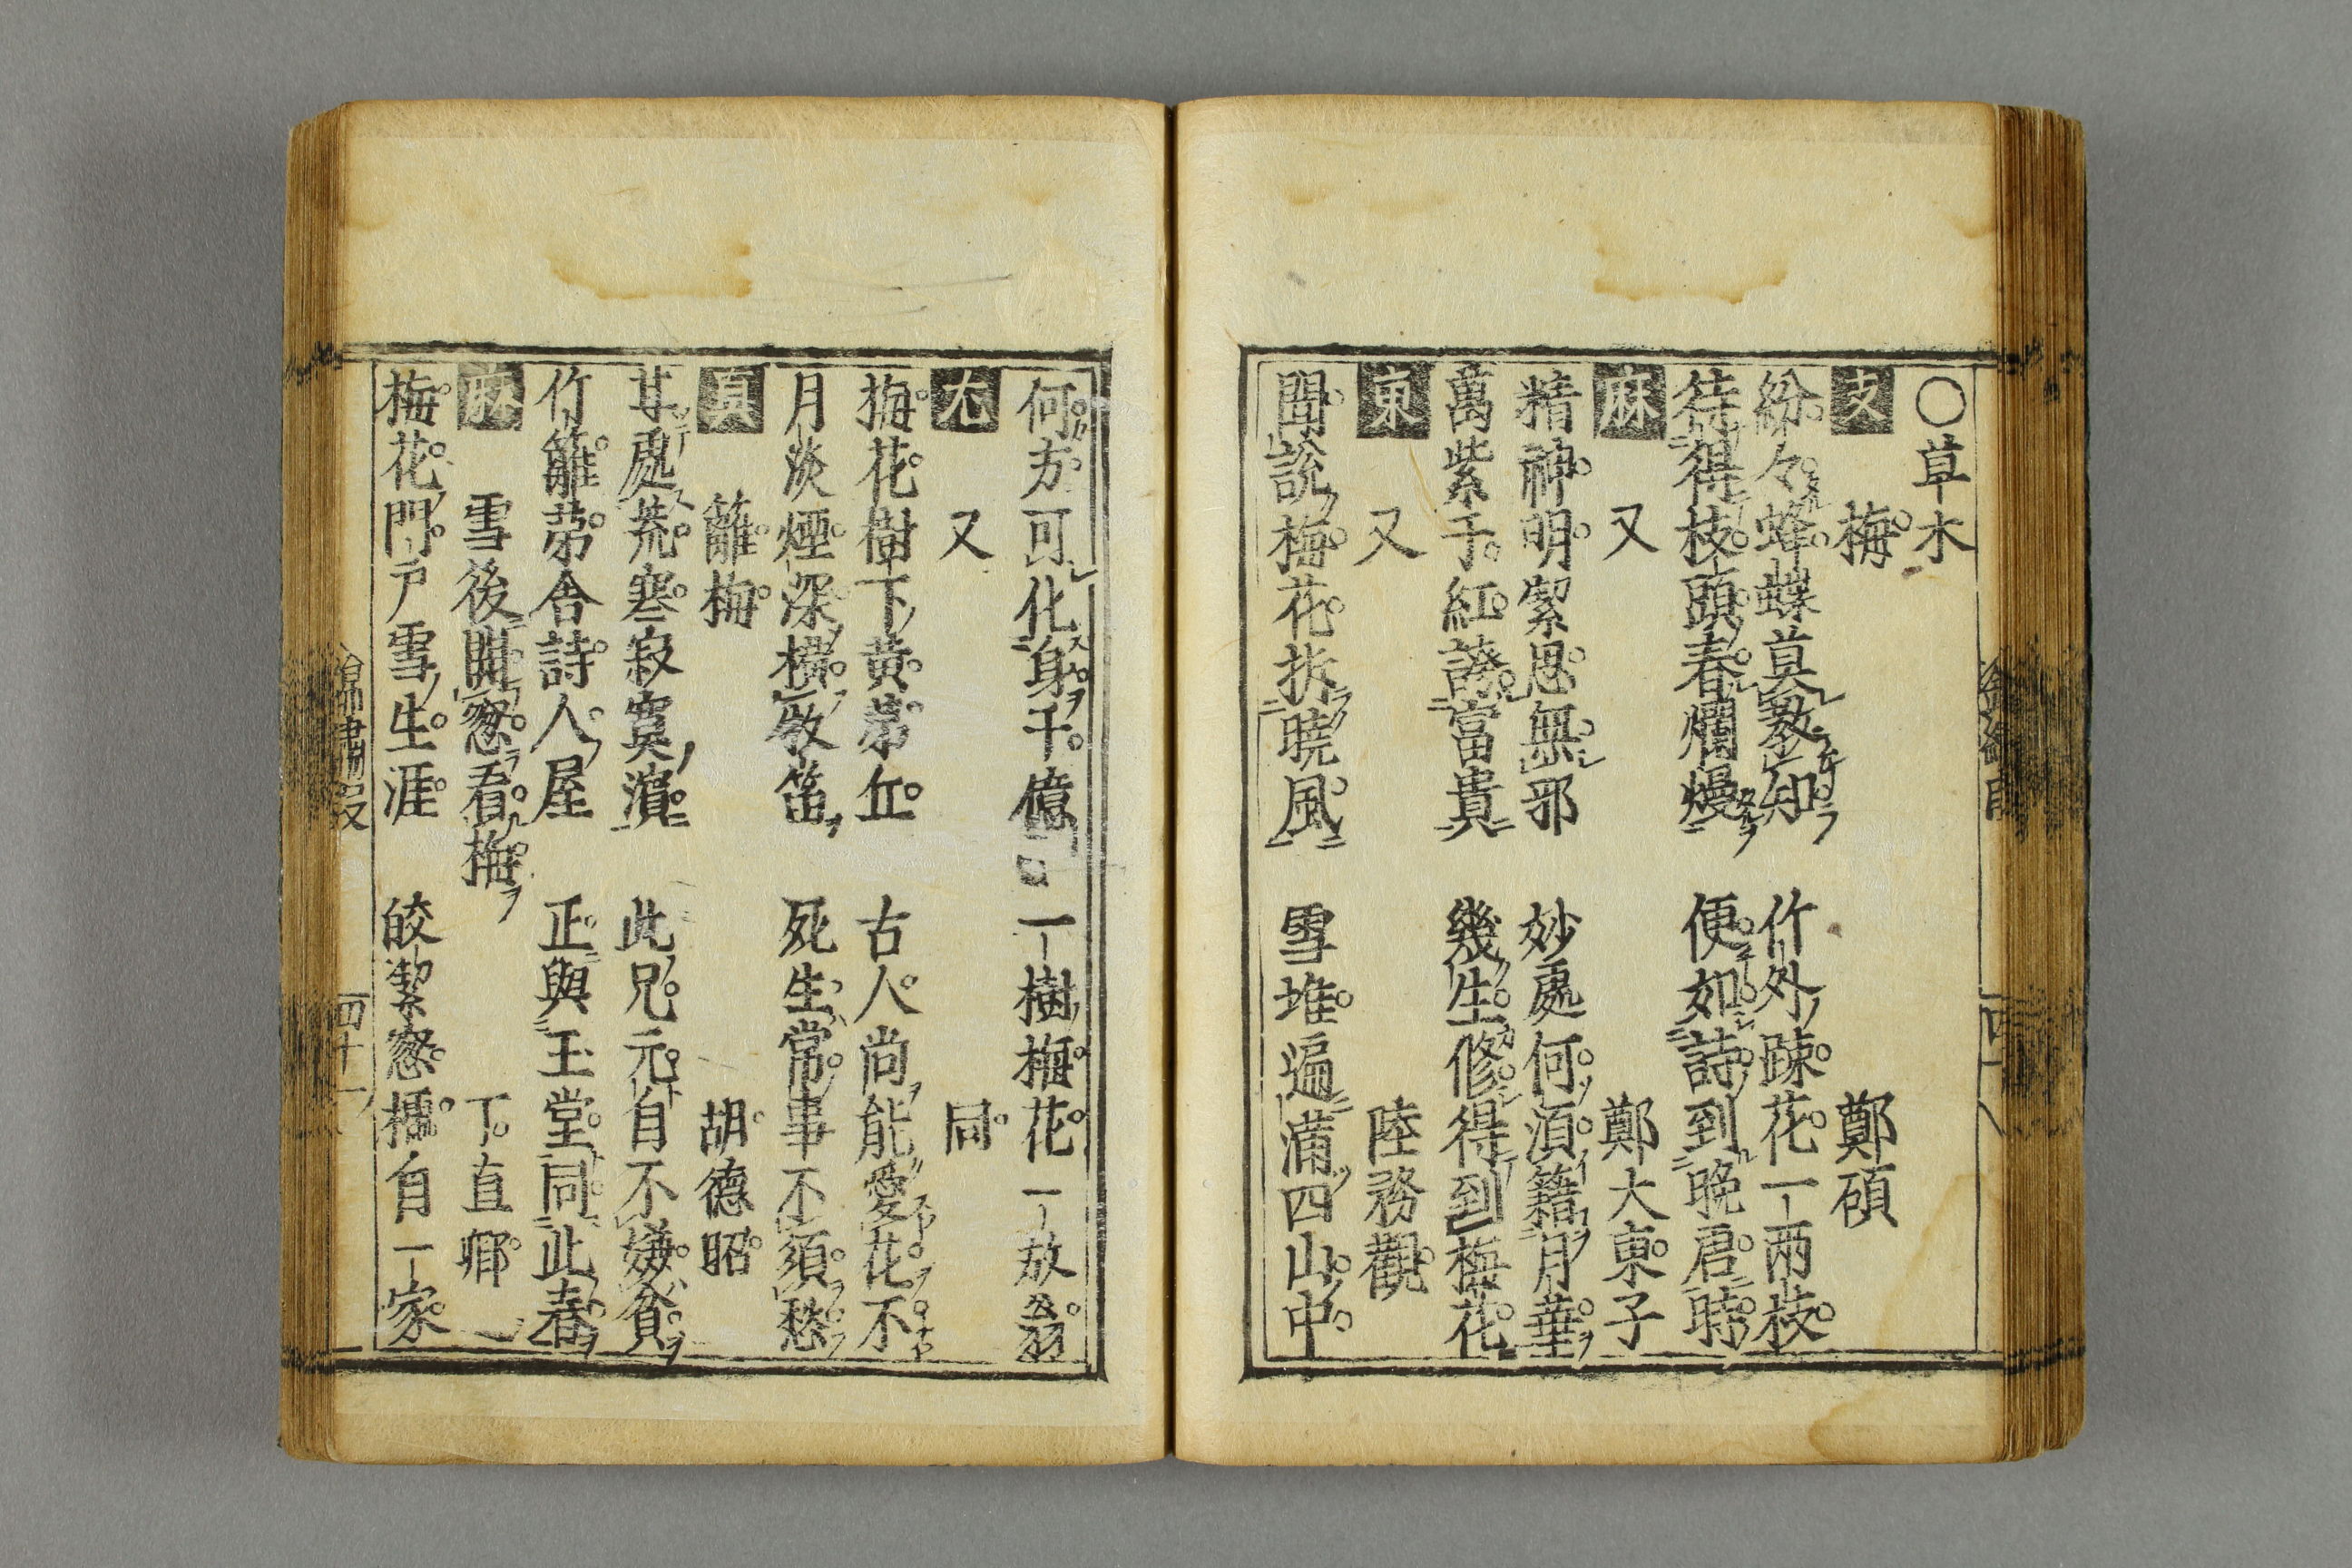 ○草木
支 梅 鄭碩
紛々蜂蝶莫教知 竹外疎花一兩枝
待得枝頭春爛熳 便如詩到晚唐時
麻 又 鄭大東子
精神明潔思無邪 妙處何須籍月華
萬紫千紅誇富貴 幾生修得到梅花
東 又 陸務觀
聞說梅花拆曉風 雪堆遍滿四山中
何方可化身千億 一樹梅花一放翁
尤 又 同
梅花樹下黃茅丘 古人尚能愛花不
月淡煙深橫牧笛 死生常事不須愁
真 籬梅 胡德昭
甘處荒寒寂寞濱 此兄元自不嫌貧
竹籬茅舍詩人屋 正與玉堂同此春
麻 雪後開窓看梅 丁直卿
梅花門戶雪生涯 皎潔窓櫺自一家
錦繡段 四十一